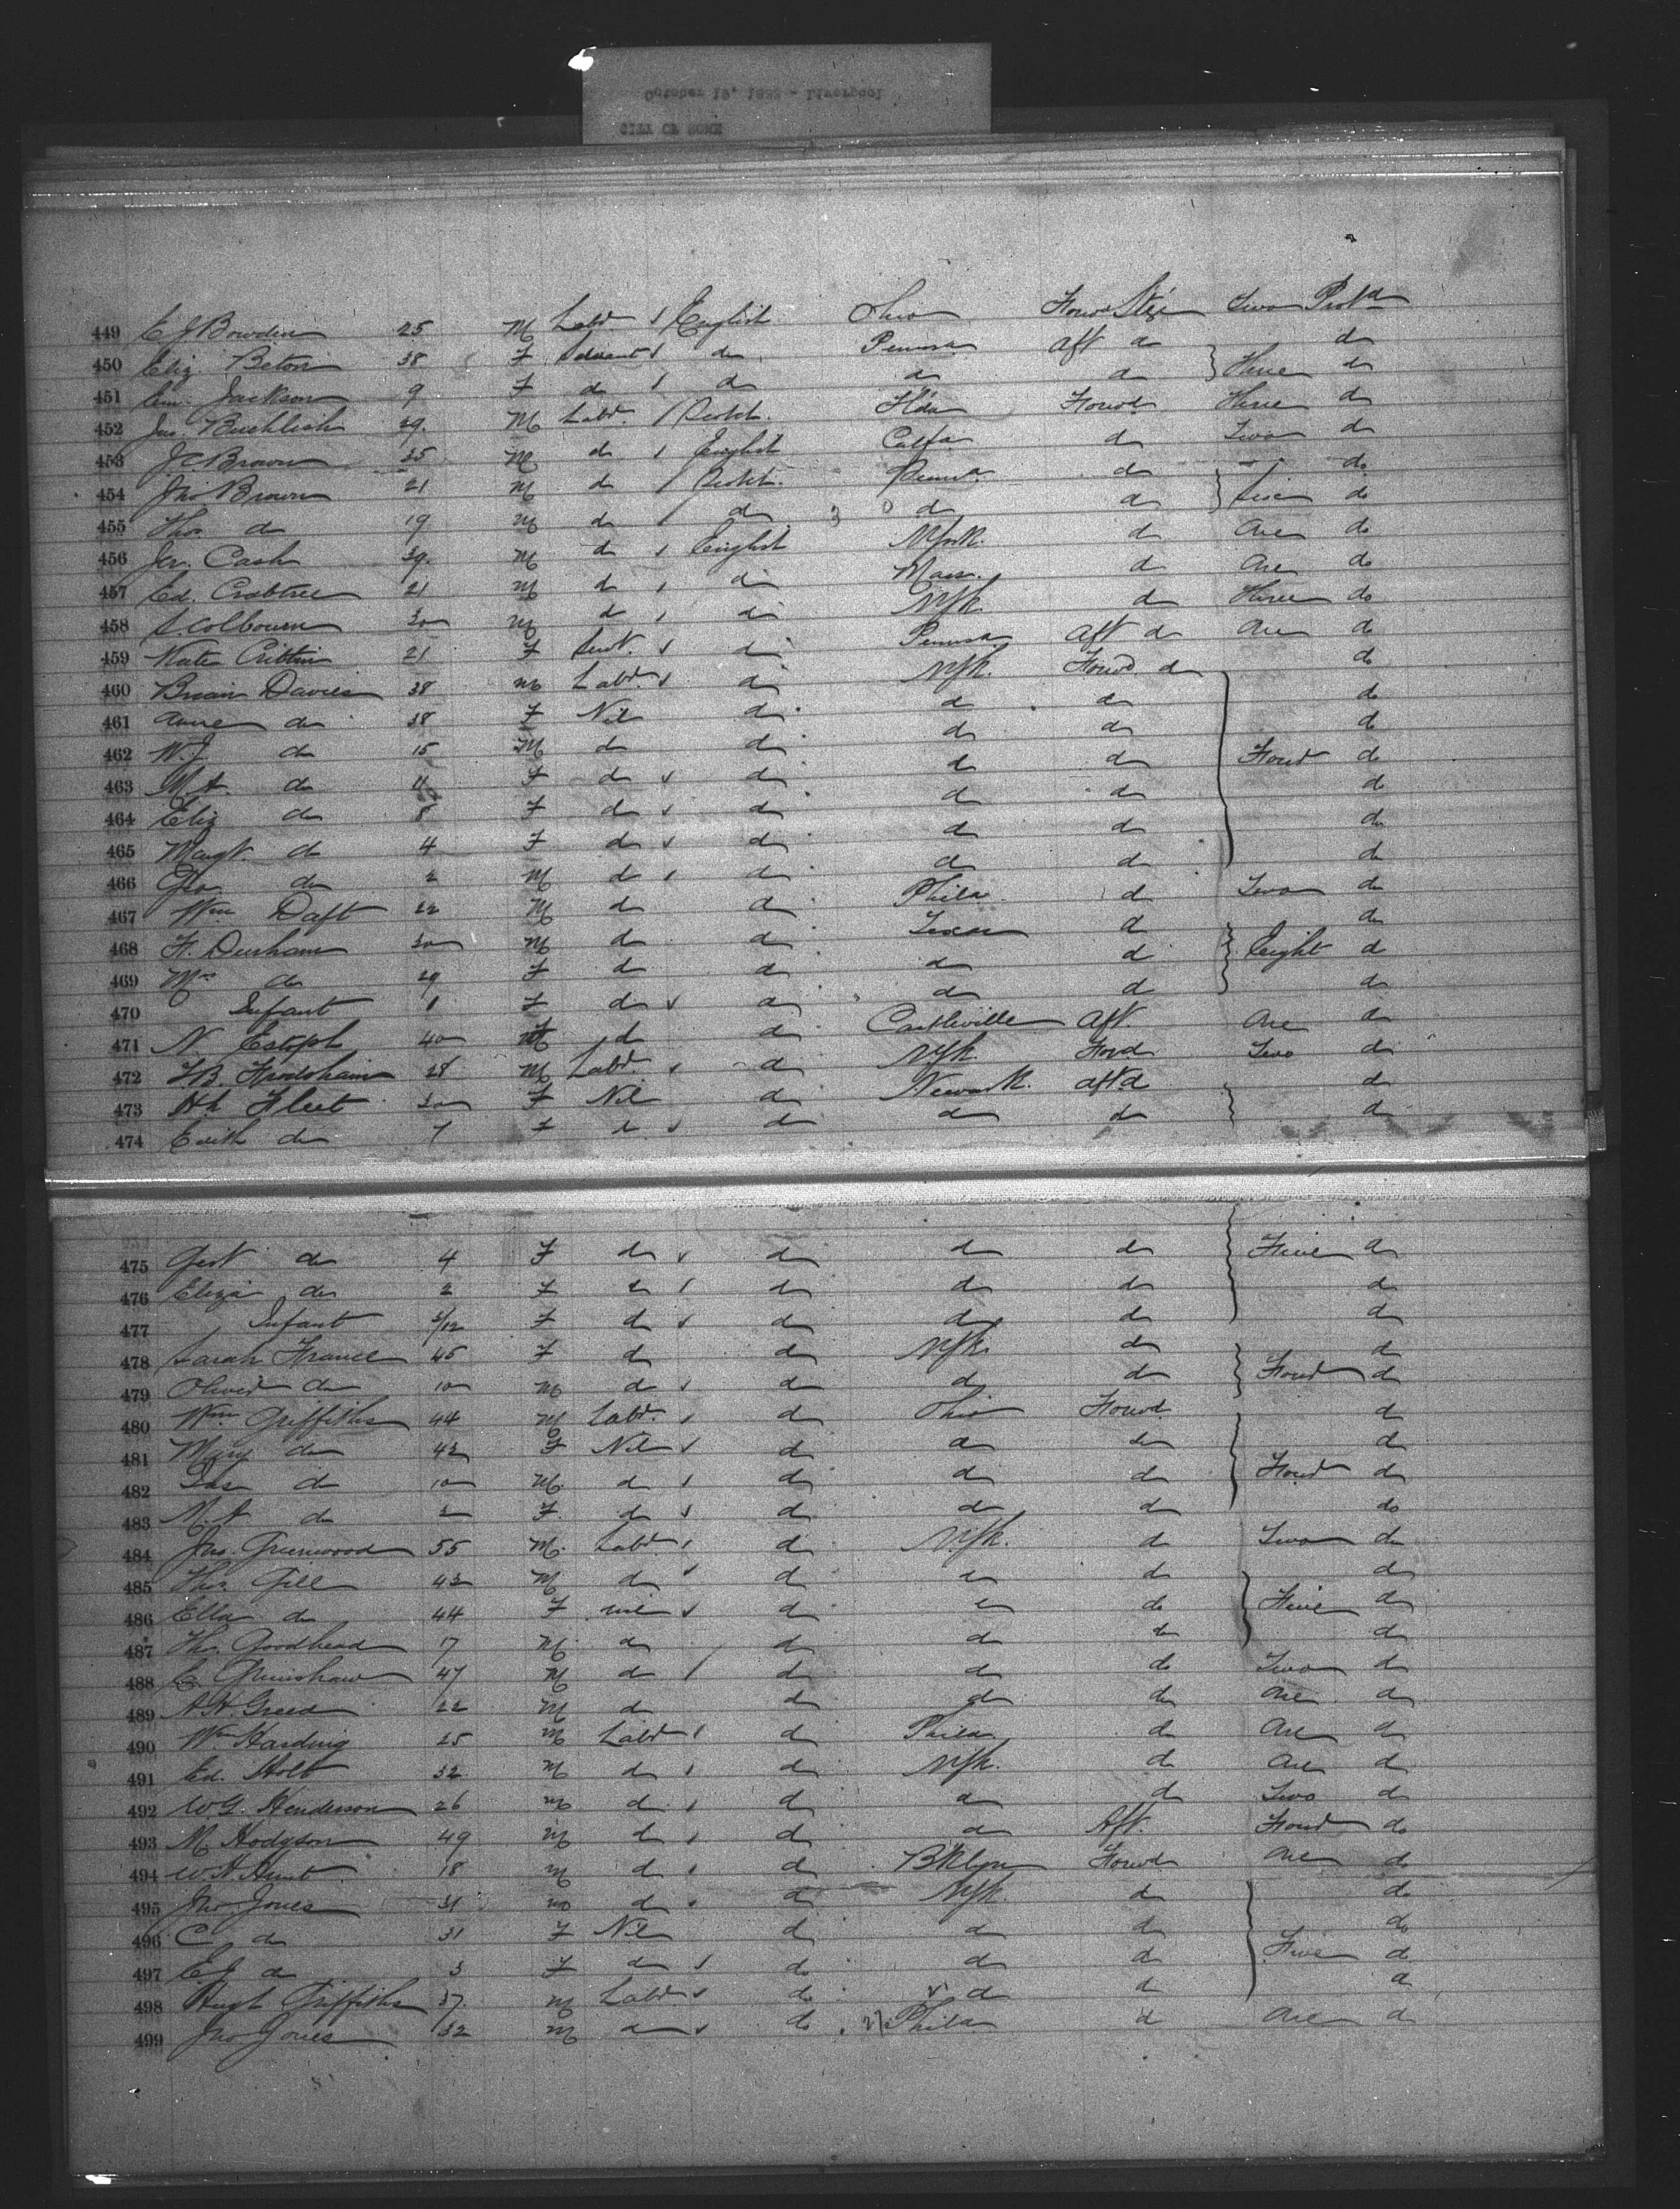 October 19, 1882 - Liverpool
CITY OF ROME
449 E J Bowden 25 M Labr English Ohio Forwd Stge Two Protd
450 Eliz. Beton 38 F Servant do Pennsa Aft do do
451 Em. Jackson 9 F do do do do Three do
452 Jas. 29 M Labr. Scotch Flda Forwd Three do
453 J C Brown 35 M do English Calfa do Two do
454 Jno Brown 21 M do Scotch Penna. do do
455 Thos do 19 M do do do do Six do
456 Jer. Cash 39 M do English NYork do One do
457 Ed. Crabtree 21 M do do Mass. do One do
458 S. Colbourn 30 M do do NYk. do Three do
459 Kate Cribbin 21 F Servt. do Pennsa Aft do One do
460 Brian Davies 38 M Labr. do NYk. Forwd. do do
461 Anne do 38 F Nil do do do do
462 W. J. do 15 M do do do do do
463 M. A. do 11 F do do do do Four do
464 Eliz do 8 F do do do do do
465 Margt. do 4 F do do do do do
466 Geo. do 2 M do do do do do
467 Wm Daft 22 M do do Phila. do Two do
468 H. Durham 30 M do do Texas do do
469 Mrs do 29 F do do do do Eight do
470 Infant 1 F do do do do do
471 N 40 do do Castleville Aft. One do
472 J B. Frodsham 28 M Labr. do NYk. Forwd Two do
473 Fleet 30 F Nil do Newark. Aft do do
474 Edith do 7 F do do do do do
475 Gert do 4 F do do do do Five do
476 Eliza do 2 F do do do do do
477 Infant /12 F do do do do do
478 Sarah France 45 F do do NYk. do do
479 Oliver do 10 M do do do do Four do
480 Wm Griffiths 44 M Labr. do Ohio Forwd. do
481 Mary do 42 F Nil do do do do
482 Jas do 10 M. do do do do Four do
483 M. A do 2 F. do do do do do
484 Jno. Greenwood 55 M. Labr. do NYk. do Two do
485 Thos. Gill 43 M do do do do do
486 Ella do 44 F nil do do do Five do
487 Thos. Goodhead 17 M. do do do do do
488 E. Grimshaw 47 M do do do do Two do
489 A H. Greed 22 M do do do do One do
490 Wm Harding 25 M Labr do Phila do One do
491 Ed. Holt 32 M do do NYk. do One do
492 W. G. Henderson 26 M do do do do Two do
493 M Hodgson 49 M do do do Aft. Four do
494 W H Hunt 18 M do do Bklyn Forwd One do
495 Jno Jones 31 M do do NYk. do do
496 C do 31 F Nil do do do do
497 E. J do 3 F do do do do Five do
498 Hugh Griffiths 37. M Labr do do do do
499 Jno Jones 32 M do do Phila do One do